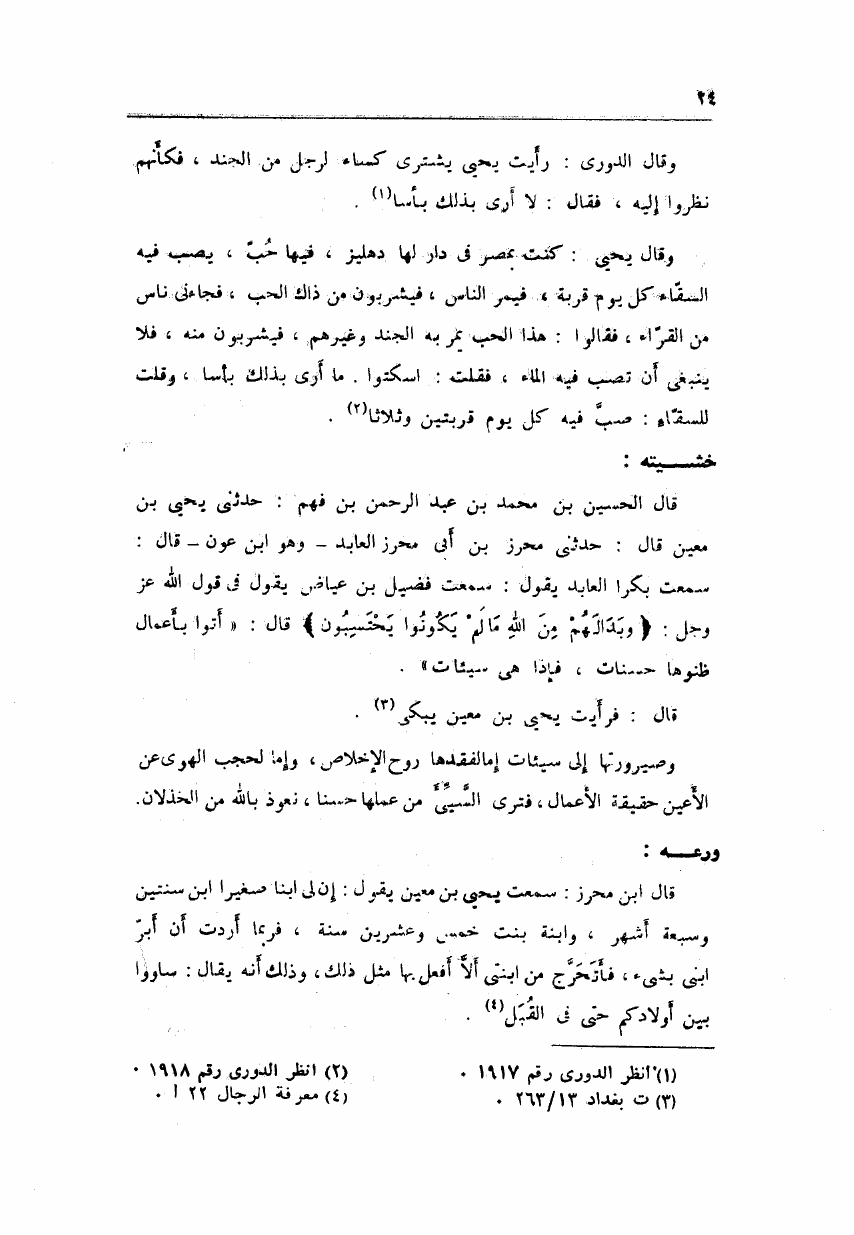 ٢٤
وقال الدورى : رأيت يحيى يشترى كساء لرجل من الجند ، فكأنهم
نظروا إليه ، فقال : لا أرى بذلك بأسا(١) .
وقال يحيى : كنت بمصر فى دار لها دهليز ، فيها حُبّ ، يصب فيه
السقّاء كل يوم قربة ، فيمر الناس ، فيشربون من ذاك الحب ، فجاءنى ناس
من القرّاء ، فقالوا : هذا الحب يمر به الجند وغيرهم ، فيشربون منه ، فلا
ينبغى أن تصب فيه الماء ، فقلت : اسكتوا . ما أرى بذلك بأسا ، وقلت
للسقّاء : صبَّ فيه كل يوم قربتين وثلاثا(٢) .
خشـــيته :
قال الحسين بن محمد بن عبد الرحمن بن فهم : حدثنى يحيى بن
معين قال : حدثنى محرز بن أبى محرز العابد – وهو ابن عون – قال :
سمعت بكرا العابد يقول : سمعت فضيل بن عياض يقول فى قول الله عز
وجل : ﴿ وَبَدَالَهُمْ مِنَ اللهِ مَالَمْ يَكُونُوا يَحْتَسِبُون ﴾ قال : « أتوا بأعمال
ظنوها حسنات ، فإذا هى سيئات» .
قال : فرأيت يحيى بن معين يبكى(٣) .
وصيرورتها إلى سيئات إمالفقدها روح الإخلاص ، وإما لحجب الهوى عن
الأعين حقيقة الأعمال ، فترى السَّيِّئَ من عملها حسنا ، نعوذ بالله من الخذلان.
ورعـــه :
قال ابن محرز : سمعت يحيى بن معين يقول : إن لى ابنا صغيرا ابن سنتين
وسبعة أشهر ، وابنة بنت خمس وعشرين سنة ، فربما أردت أن أبرّ
ابنى بشىء ، فأتَحَرَّج من ابنتى ألاَّ أفعل بها مثل ذلك ، وذلك أنه يقال : ساووا
بين أولادكم حتى فى القُبَل(٤) .
(١) انظر الدورى رقم ١٩١٧ .
(٢) انظر الدورى رقم ١٩١٨ .
(٣) ت بغداد ٢٦٣/١٣ .
(٤) معرفة الرجال ٢٢ ا .